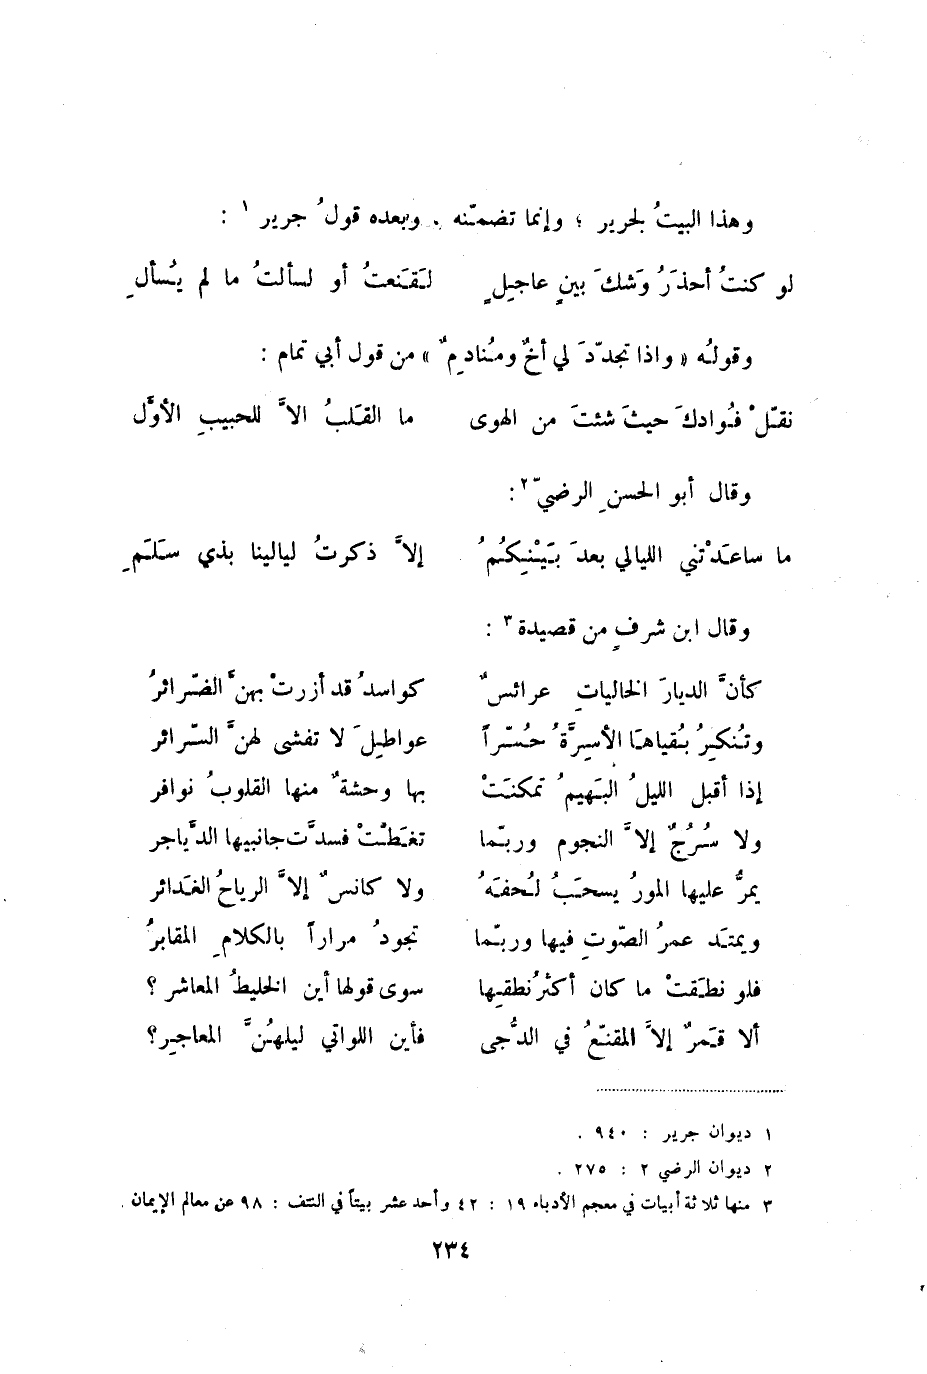 وهذا البيتُ لجرير ؛ وإنما تضمّنه . وبعده قولُ جرير ١ :
لو كنتُ أحذَرُ وَشكَ بينٍ عاجِلٍ لقَنعتُ أو لسألتُ ما لم يُسألِ
وقولُه « واذا تجدّدَ لي أخٌ ومُنادِمٌ » من قول أبي تمام :
نقّلْ فُوادكَ حيثَ شئتَ من الهوى ما القَلبُ الاَّ للحبيبِ الأوَّل
وقال أبو الحسنِ الرضيّ ٢ :
ما ساعَدْتني الليالي بعدَ بَيْنِكُمُ إلاَّ ذكرتُ ليالينا بذي سَلَمِ
وقال ابن شرفٍ من قصيدة ٣ :
كأنَّ الديارَ الخالياتِ عرائسٌ كواسدُ قد أزرتْ بهنَّ الضّرائرُ
وتُنكِرُ بُقياهَا الأسِرَّةُ حُسّراً عواطِلَ لا تفشى لهنَّ السّرائر
إذا أقبل الليلُ البَهيمُ تمكنَتْ بها وحشةٌ منها القلوبُ نوافر
ولا سُرُجٌ إلاَّ النجوم وربّما تغَطّتْ فسدَّت جانبيها الدَّياجر
يمرُّ عليها المورُ يسحَبُ لُحفَهُ ولا كانسٌ إلاَّ الرياحُ الغَدائر
ويمتَد عمرُ الصّوتِ فيها وربّما تجودُ مراراً بالكلامِ المقابرُ
فلو نطَقتْ ما كان أكثرُ نطقِها سوى قولها أين الخليطُ المعاشر ؟
ألا قَمرٌ إلاَّ المقنّعُ في الدُّجى فأين اللواتي ليلهُنَّ المعاجِر؟
١ ديوان جرير : ٩٤٠ .
٢ ديوان الرضي ٢ : ٢٧٥ .
٣ منها ثلاثة أبيات في معجم الأدباء ١٩ : ٤٢ وأحد عشر بيتاً في النتف : ٩٨ عن معالم الإيمان .
٢٣٤